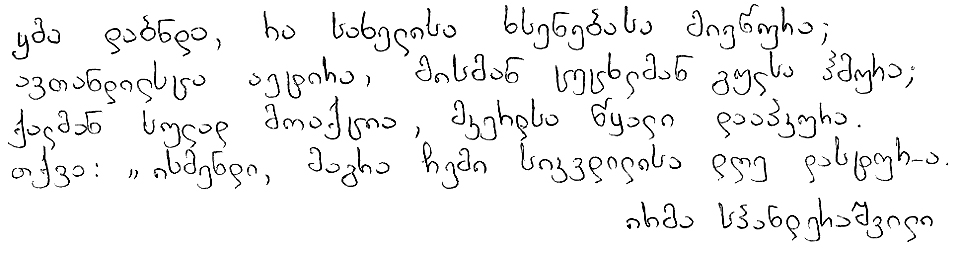 ყმა დაბნდა, რა სახელისა ხსენებასა მიეწურა;
ავთანდილსცა აეტირა, მისმან ცეცხლმან გულსა ჰმურა;
ქალმან სულად მოაქცია, მკერდსა წყალი დააპკურა.
თქვა: „ისმენდი, მაგრა ჩემი სიკვდილისა დღე დასტურ-ა.
ირმა სპანდერაშვილი